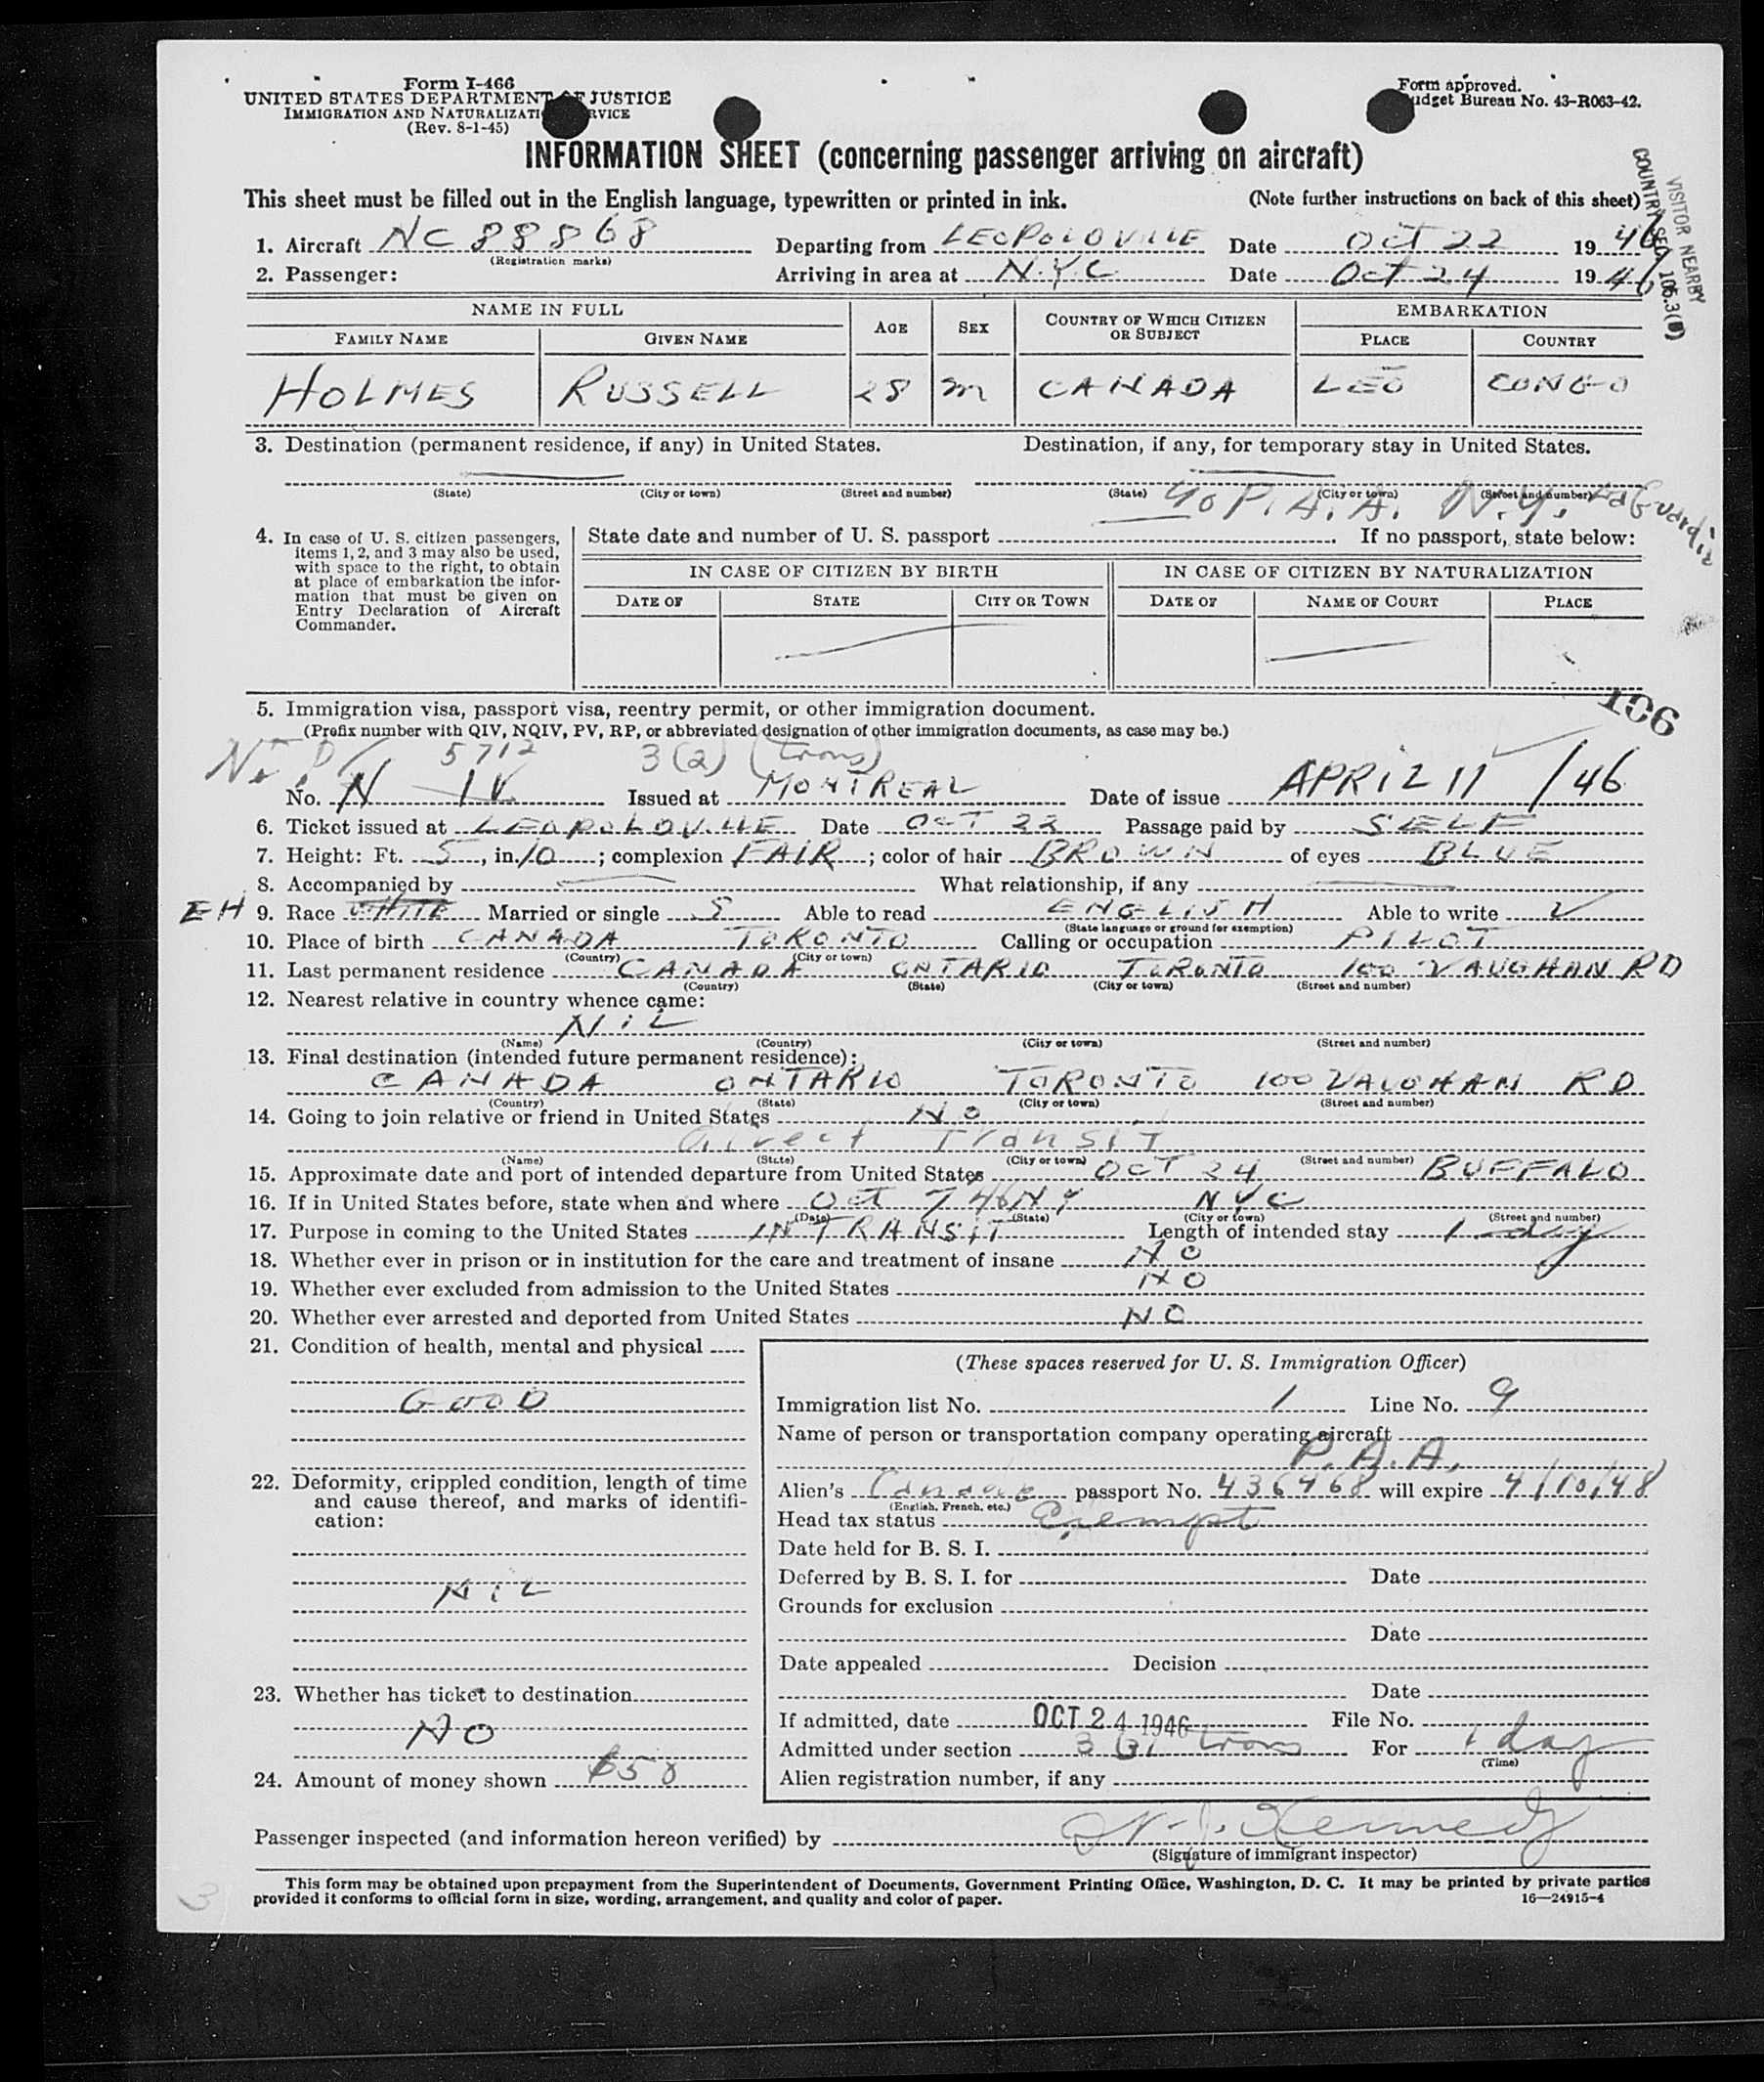 Form I-466
UNITED STATES DEPARTMENT OF JUSTICE
IMMIGRATION AND NATURALIZATION SERVICE
(Rev. 8-1-45)
Form approved.
Budget Bureau No. 43-R063-42.
INFORMATION SHEET (concerning passenger arriving on aircraft)
This sheet must be filled out in the English language, typewritten or printed in ink. (Note further instructions on back of this sheet)
VISITOR NEARBY
COUNTRY SEC. 105.3(
1. Aircraft NC 88868 Departing from LEOPOLDVILLE Date OCT 22 1946
(Registration marks)
2. Passenger: Arriving in area at N.Y.C. Date Oct 24 1946
NAME IN FULL AGE SEX COUNTRY OF WHICH CITIZEN OR SUBJECT EMBARKATION
FAMILY NAME GIVEN NAME PLACE COUNTRY
HOLMES RUSSELL 28 M CANADA LEO CONGO
3. Destination (permanent residence, if any) in United States. Destination, if any, for temporary stay in United States.
(State) (City or town) (Street and number) (State) (City or town) (Street and number)
c/o P.A.A. N.Y. LaGuardia
4. In case of U. S. citizen passengers, items 1, 2, and 3 may also be used, with space to the right, to obtain at place of embarkation the information that must be given on Entry Declaration of Aircraft Commander.
State date and number of U. S. passport . If no passport, state below:
IN CASE OF CITIZEN BY BIRTH IN CASE OF CITIZEN BY NATURALIZATION
DATE OF STATE CITY OR TOWN DATE OF NAME OF COURT PLACE
106
5. Immigration visa, passport visa, reentry permit, or other immigration document.
(Prefix number with QIV, NQIV, PV, RP, or abbreviated designation of other immigration documents, as case may be.)
5712 3(2) (trans)
No. N IV Issued at MONTREAL Date of issue APRIL 11 /46
6. Ticket issued at LEOPOLDVILLE Date OCT 22 Passage paid by SELF
7. Height: Ft. 5, in. 10; complexion FAIR; color of hair BROWN of eyes BLUE
8. Accompanied by What relationship, if any
EH 9. Race WHITE Married or single S Able to read ENGLISH Able to write ✓
(State language or ground for exemption)
10. Place of birth CANADA TORONTO Calling or occupation PILOT
(Country) (City or town)
11. Last permanent residence CANADA ONTARIO TORONTO 100 VAUGHAN RD
(Country) (State) (City or town) (Street and number)
12. Nearest relative in country whence came:
NIL
(Name) (Country) (City or town) (Street and number)
13. Final destination (intended future permanent residence):
CANADA ONTARIO TORONTO 100 VAUGHAN RD
(Country) (State) (City or town) (Street and number)
14. Going to join relative or friend in United States NO
direct Transit
(Name) (State) (City or town) (Street and number)
15. Approximate date and port of intended departure from United States OCT 24 BUFFALO
16. If in United States before, state when and where Oct 7 46 NY NYC
(Date) (State) (City or town) (Street and number)
17. Purpose in coming to the United States IN TRANSIT Length of intended stay 1 day
18. Whether ever in prison or in institution for the care and treatment of insane NO
19. Whether ever excluded from admission to the United States NO
20. Whether ever arrested and deported from United States NO
21. Condition of health, mental and physical
GOOD
22. Deformity, crippled condition, length of time and cause thereof, and marks of identification:
NIL
23. Whether has ticket to destination
NO
24. Amount of money shown $50
(These spaces reserved for U. S. Immigration Officer)
Immigration list No. 1 Line No. 9
Name of person or transportation company operating aircraft
P.A.A.
Alien's passport No. 436468 will expire 4/10/48
(English, French, etc.)
Head tax status Exempt
Date held for B. S. I.
Deferred by B. S. I. for Date
Grounds for exclusion
Date
Date appealed Decision
Date
If admitted, date OCT 24 1946 File No.
Admitted under section trans For 1 day
(Time)
Alien registration number, if any
Passenger inspected (and information hereon verified) by Kennedy
(Signature of immigrant inspector)
This form may be obtained upon prepayment from the Superintendent of Documents, Government Printing Office, Washington, D. C. It may be printed by private parties
provided it conforms to official form in size, wording, arrangement, and quality and color of paper. 16—24915-4
3